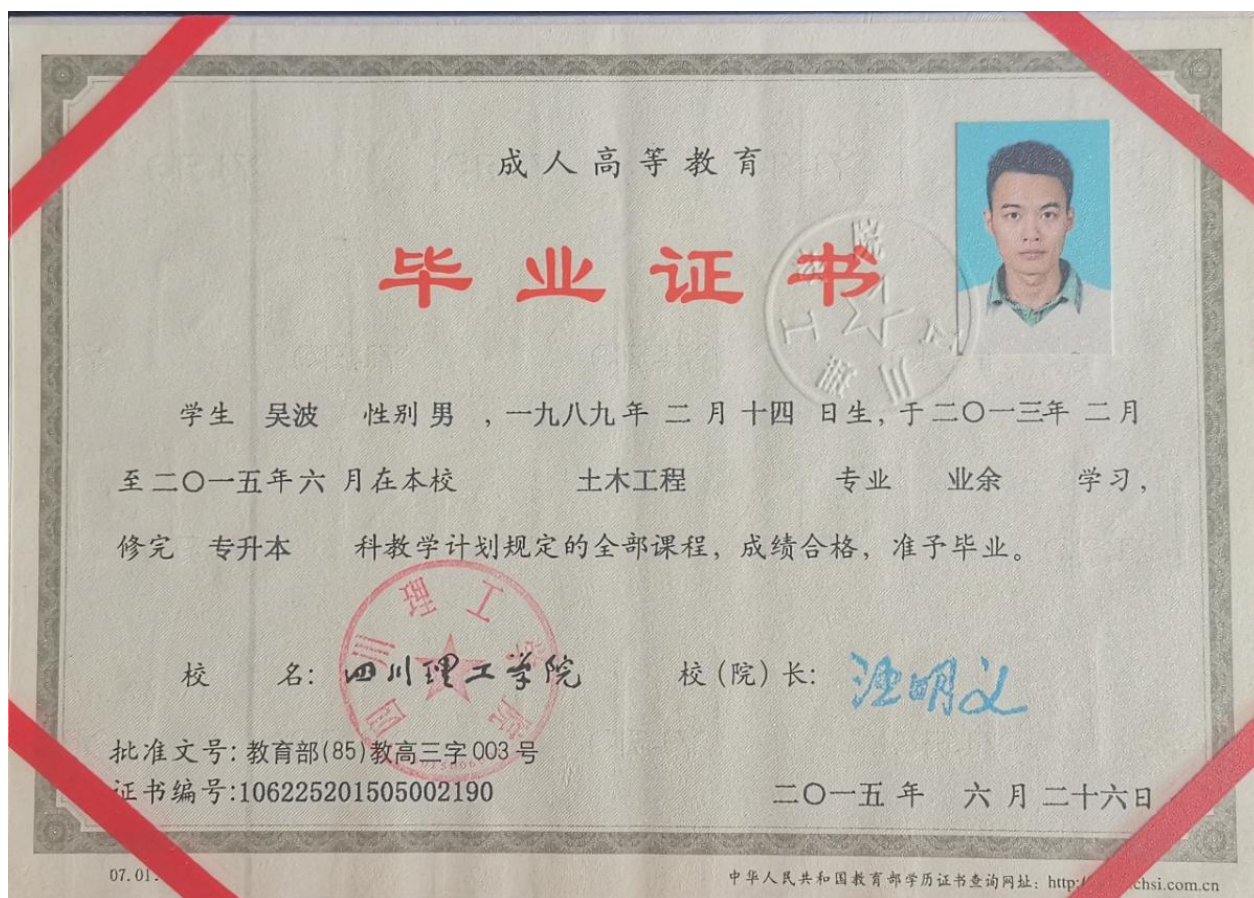 成人高等教育
毕业证书
学生 吴波 性别 男 , 一九八九年 二 月 十四 日生, 于二〇一三年 二月
至二〇一五年六 月在本校 土木工程 专业 业余 学习,
修完 专升本 科教学计划规定的全部课程, 成绩合格, 准予毕业。
四川理工学院
校 名: 四川理工学院 校(院)长:
批准文号: 教育部(85)教高三字003号
证书编号:106225201505002190 二〇一五年 六月二十六日
07.01. 中华人民共和国教育部学历证书查询网址: http:/ chsi.com.cn